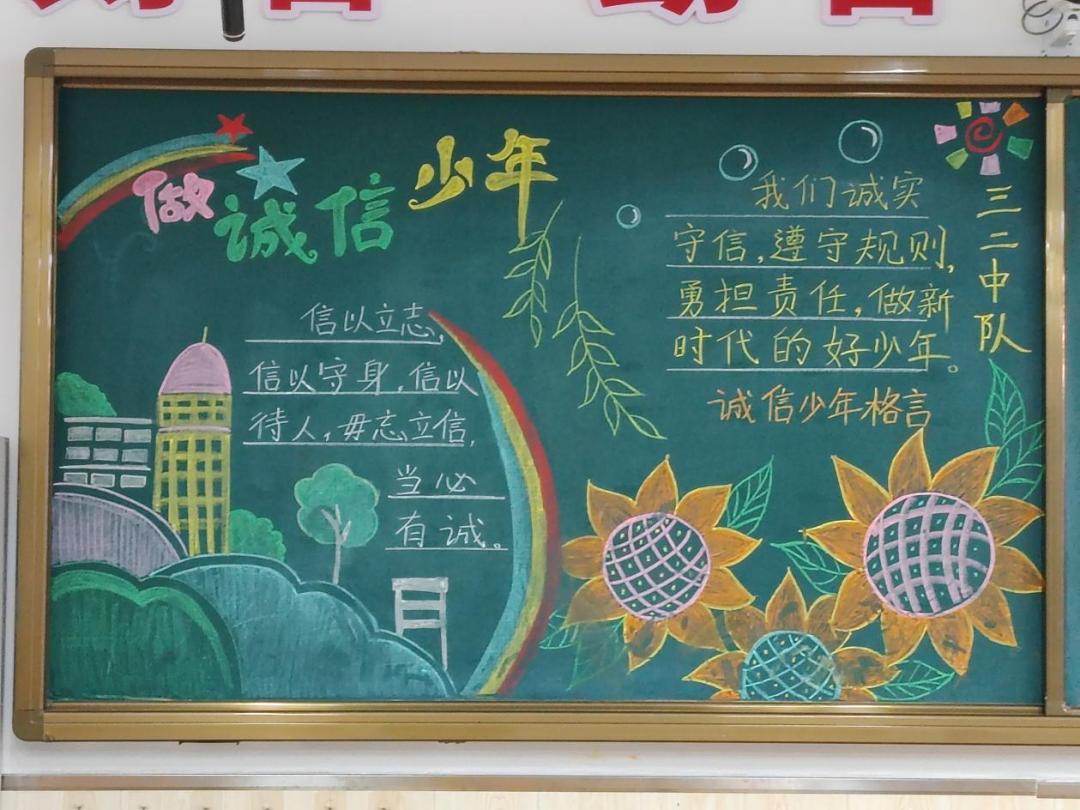 做诚信少年
信以立志,
信以守身,信以
待人,毋忘立信,
当必
有诚。
我们诚实
守信,遵守规则,
勇担责任,做新
时代的好少年。
诚信少年格言
三二中队